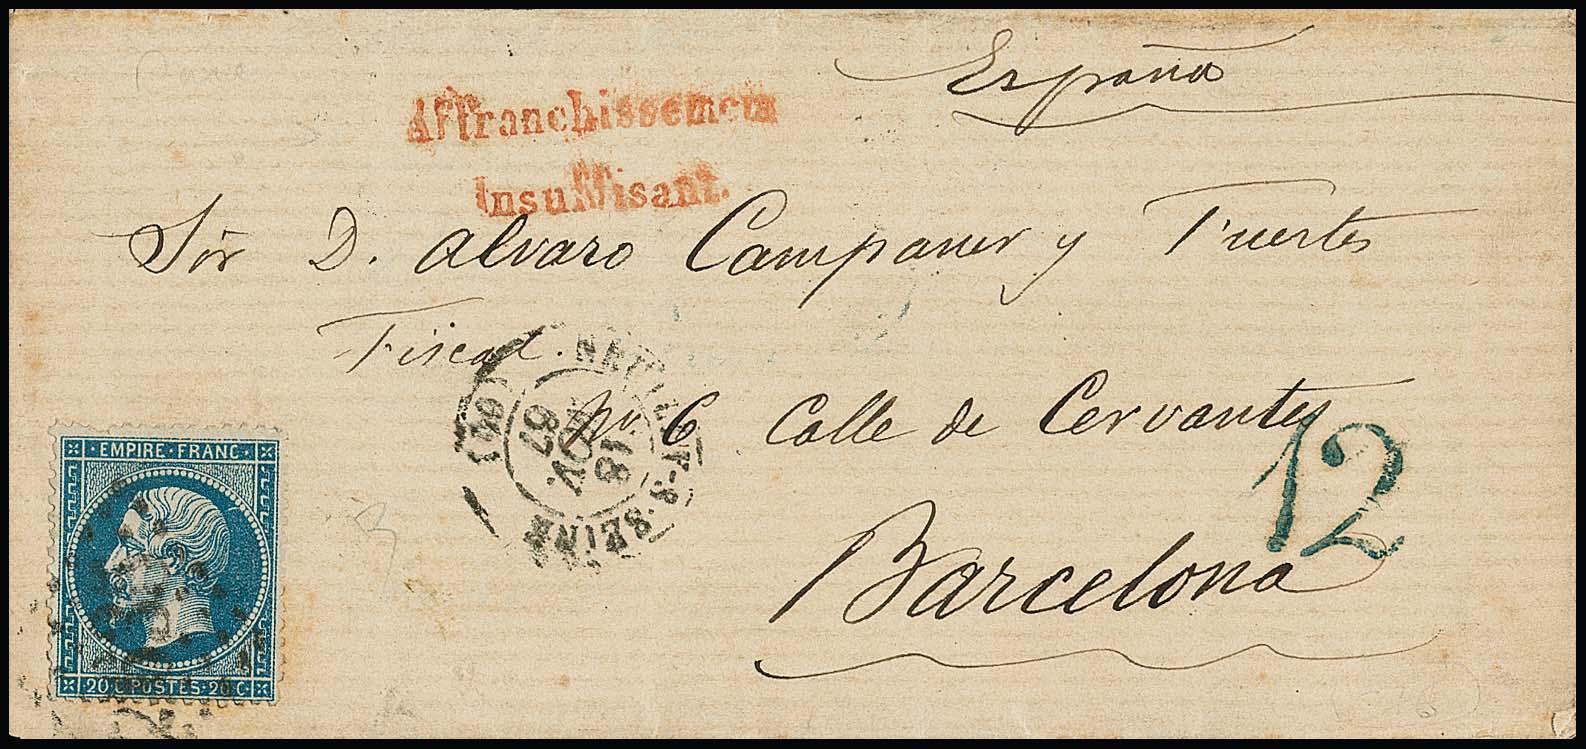 España
Affranchissement
Insuffisant.
Sör D. Alvaro Campaner y Fuertes
Fiscal.
No. 6 Calle de Cervantes
Barcelona
12
NEUILLY-S-SEINE
(60)
18
NOV.
67
EMPIRE·FRANC·
20 C·POSTES·20 C·